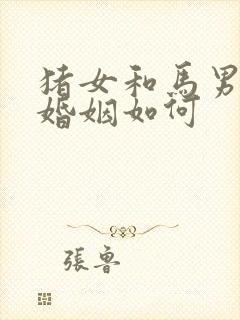 猪女和馬男
婚姻如何
張魯